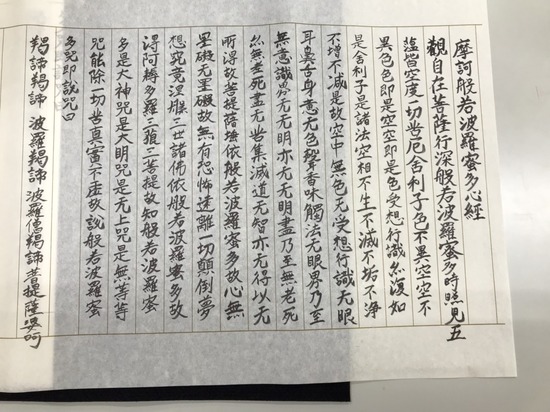 摩訶般若波羅蜜多心經
觀自在菩薩行深般若波羅蜜多時照見五
蘊皆空度一切苦厄舍利子色不異空空不
異色色即是空空即是色受想行識亦復如
是舍利子是諸法空相不生不滅不垢不淨
不增不減是故空中無色无受想行識无眼
耳鼻舌身意无色聲香味觸法无眼界乃至
無意識界无无明亦无无明盡乃至無老死
亦無老死盡无苦集滅道无智亦无得以无
所得故菩提薩埵依般若波羅蜜多故心無
罣礙无罣礙故無有恐怖遠離一切顛倒夢
想究竟涅槃三世諸佛依般若波羅蜜多故
得阿耨多羅三藐三菩提故知般若波羅蜜
多是大神咒是大明咒是无上咒是無等等
咒能除一切苦真實不虛故說般若波羅蜜
多咒即說咒曰
羯諦羯諦 波羅羯諦 波羅僧羯諦 菩提薩婆呵